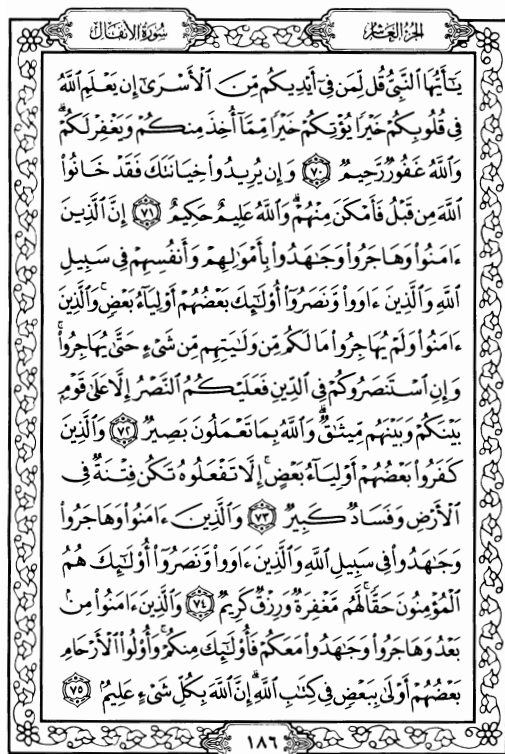 الجزء العاشر
سورة الأنفال
يَـٰٓأَيُّهَا ٱلنَّبِىُّ قُل لِّمَن فِىٓ أَيْدِيكُم مِّنَ ٱلْأَسْرَىٰٓ إِن يَعْلَمِ ٱللَّهُ
فِى قُلُوبِكُمْ خَيْرًا يُؤْتِكُمْ خَيْرًا مِّمَّآ أُخِذَ مِنكُمْ وَيَغْفِرْ لَكُمْ ۗ
وَٱللَّهُ غَفُورٌ رَّحِيمٌ ٧٠ وَإِن يُرِيدُوا۟ خِيَانَتَكَ فَقَدْ خَانُوا۟
ٱللَّهَ مِن قَبْلُ فَأَمْكَنَ مِنْهُمْ ۗ وَٱللَّهُ عَلِيمٌ حَكِيمٌ ٧١ إِنَّ ٱلَّذِينَ
ءَامَنُوا۟ وَهَاجَرُوا۟ وَجَـٰهَدُوا۟ بِأَمْوَٰلِهِمْ وَأَنفُسِهِمْ فِى سَبِيلِ
ٱللَّهِ وَٱلَّذِينَ ءَاوَوا۟ وَّنَصَرُوٓا۟ أُو۟لَـٰٓئِكَ بَعْضُهُمْ أَوْلِيَآءُ بَعْضٍ ۚ وَٱلَّذِينَ
ءَامَنُوا۟ وَلَمْ يُهَاجِرُوا۟ مَا لَكُم مِّن وَلَـٰيَتِهِم مِّن شَىْءٍ حَتَّىٰ يُهَاجِرُوا۟ ۚ
وَإِنِ ٱسْتَنصَرُوكُمْ فِى ٱلدِّينِ فَعَلَيْكُمُ ٱلنَّصْرُ إِلَّا عَلَىٰ قَوْمٍۭ
بَيْنَكُمْ وَبَيْنَهُم مِّيثَـٰقٌ ۗ وَٱللَّهُ بِمَا تَعْمَلُونَ بَصِيرٌ ٧٢ وَٱلَّذِينَ
كَفَرُوا۟ بَعْضُهُمْ أَوْلِيَآءُ بَعْضٍ ۚ إِلَّا تَفْعَلُوهُ تَكُن فِتْنَةٌ فِى
ٱلْأَرْضِ وَفَسَادٌ كَبِيرٌ ٧٣ وَٱلَّذِينَ ءَامَنُوا۟ وَهَاجَرُوا۟
وَجَـٰهَدُوا۟ فِى سَبِيلِ ٱللَّهِ وَٱلَّذِينَ ءَاوَوا۟ وَّنَصَرُوٓا۟ أُو۟لَـٰٓئِكَ هُمُ
ٱلْمُؤْمِنُونَ حَقًّا ۚ لَّهُم مَّغْفِرَةٌ وَرِزْقٌ كَرِيمٌ ٧٤ وَٱلَّذِينَ ءَامَنُوا۟ مِنۢ
بَعْدُ وَهَاجَرُوا۟ وَجَـٰهَدُوا۟ مَعَكُمْ فَأُو۟لَـٰٓئِكَ مِنكُمْ ۚ وَأُو۟لُوا۟ ٱلْأَرْحَامِ
بَعْضُهُمْ أَوْلَىٰ بِبَعْضٍ فِى كِتَـٰبِ ٱللَّهِ ۗ إِنَّ ٱللَّهَ بِكُلِّ شَىْءٍ عَلِيمٌ ٧٥
١٨٦